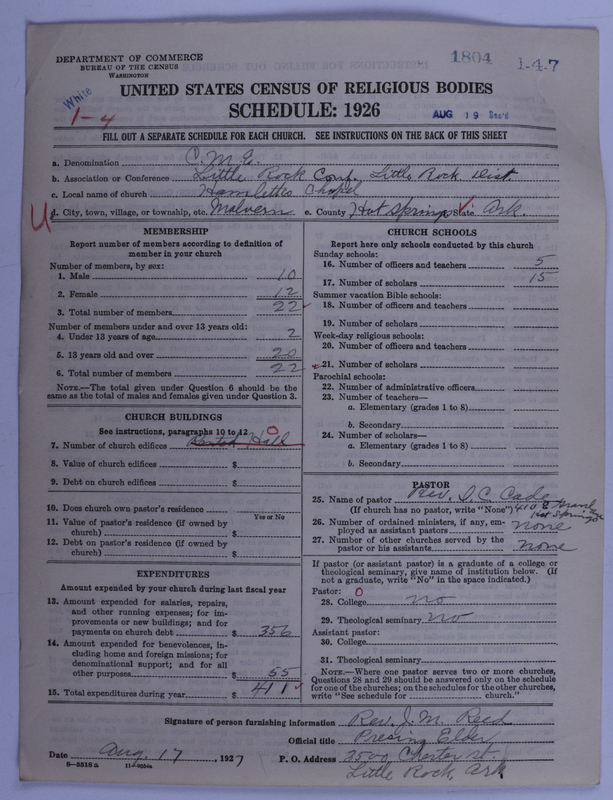 1804
1-4-7
DEPARTMENT OF COMMERCE
BUREAU OF THE CENSUS
WASHINGTON
White
1-4
UNITED STATES CENSUS OF RELIGIOUS BODIES
SCHEDULE: 1926
AUG 19 Rec'd
FILL OUT A SEPARATE SCHEDULE FOR EACH CHURCH. SEE INSTRUCTIONS ON THE BACK OF THIS SHEET
a. Denomination C.M.E.
b. Association or Conference Little Rock Conf. Little Rock Dist.
c. Local name of church Hamletts Chapel
d. City, town, village, or township, etc. Malvern e. County Hot Springs State Ark.
MEMBERSHIP
Report number of members according to definition of
member in your church
Number of members, by sex:
1. Male 10
2. Female 12
3. Total number of members 22
Number of members under and over 13 years old:
4. Under 13 years of age 2
5. 13 years old and over 20
6. Total number of members 22
NOTE.—The total given under Question 6 should be the
same as the total of males and females given under Question 3.
CHURCH BUILDINGS
See instructions, paragraphs 10 to 12
7. Number of church edifices Rented Hall 0
8. Value of church edifices $
9. Debt on church edifices $
10. Does church own pastor's residence
Yes or No
11. Value of pastor's residence (if owned by
church) $
12. Debt on pastor's residence (if owned by
church) $
EXPENDITURES
Amount expended by your church during last fiscal year
13. Amount expended for salaries, repairs,
and other running expenses; for im-
provements or new buildings; and for
payments on church debt $ 356
14. Amount expended for benevolences, in-
cluding home and foreign missions; for
denominational support; and for all
other purposes $ 55
15. Total expenditures during year $ 411
CHURCH SCHOOLS
Report here only schools conducted by this church
Sunday schools:
16. Number of officers and teachers 5
17. Number of scholars 15
Summer vacation Bible schools:
18. Number of officers and teachers
19. Number of scholars
Week-day religious schools:
20. Number of officers and teachers
21. Number of scholars
Parochial schools:
22. Number of administrative officers
23. Number of teachers—
a. Elementary (grades 1 to 8)
b. Secondary
24. Number of scholars—
a. Elementary (grades 1 to 8)
b. Secondary
PASTOR
25. Name of pastor Rev. I. C. Cade
(If church has no pastor, write "None") 410 E Grand
Hot Springs
26. Number of ordained ministers, if any, em-
ployed as assistant pastors none
27. Number of other churches served by the
pastor or his assistants none
If pastor (or assistant pastor) is a graduate of a college or
theological seminary, give name of institution below. (If
not a graduate, write "No" in the space indicated.)
Pastor: 0
28. College no
29. Theological seminary no
Assistant pastor:
30. College
31. Theological seminary
NOTE.—Where one pastor serves two or more churches,
Questions 28 and 29 should be answered only on the schedule
for one of the churches; on the schedules for the other churches,
write "See schedule for church."
Signature of person furnishing information Rev. J. M. Reed
Official title Presing Elder
Date Aug. 17, 1927 P. O. Address 3500 Charter st.
Little Rock, Ark
6-5518 a 11-9254a